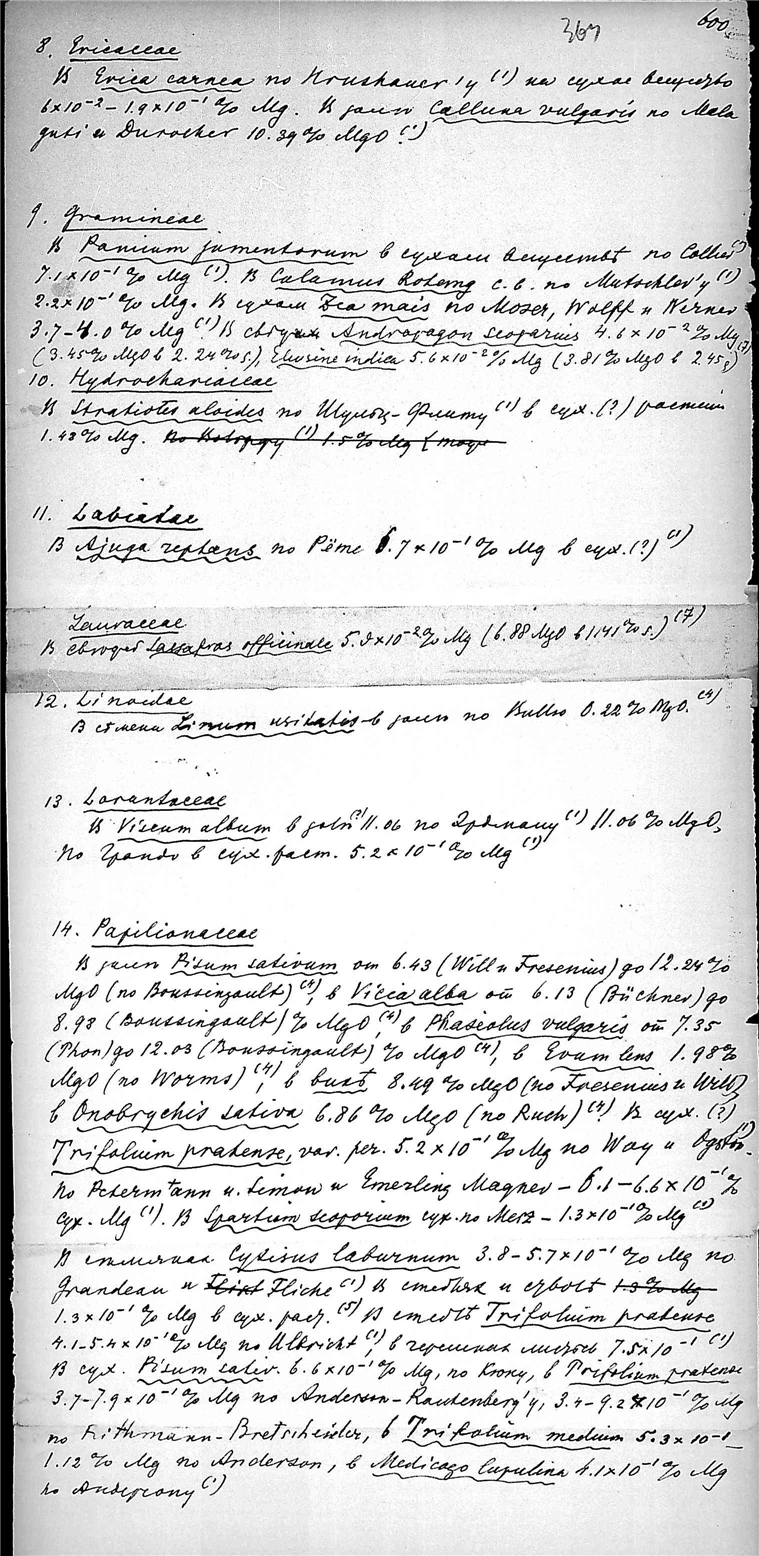 367
600
8. Ericaceae
В Erica carnea по Hrushauer'у (1) на сухое вещество
6×10-2 – 1.9×10-1 % Mg. В золе Calluna vulgaris по Mala
guti и Durocher 10.39% MgO (1)
9. Gramineae
В Panicum jumentorum в сухом веществѣ по Collier
7.1×10-1 % Mg (1). В Calamus Rotang с.в. по Mutschler'у (1)
2.2×10-1 % Mg. В сухом Zea mais по Moser, Wolff и Kerner
3.7–4.0% Mg (1) В Andropogon scoparius 4.6×10-2 % Mg (7)
(3.45% MgO в 2.24% s.), Eleusine indica 5.6×10-2 % Mg (3.81% MgO в 2.45 s)
10. Hydrochariaceae
В Stratiotes aloides по Шульц-Флиту (1) в сух.(?) растении
1.43% Mg. 1.5% Mg
11. Labiatae
В Ajuga reptans по Рёте 6.7×10-1 % Mg в сух.(?) (1)
Lauraceae
В Sassafras officinale 5.9×10-2 % Mg (6.88 MgO в 1.141% s.) (7)
12. Linoidae
В сѣмени Linum usitatis. в золе по 0.22% MgO. (4)
13. Lorantaceae
В Viscum album в золѣ 11.06 по Эрдману (1) 11.06% MgO,
по Грандо в сух. раст. 5.2×10-1 % Mg (1)
14. Papilionaceae
В золе Pisum sativum от 6.43 (Will и Fresenius) до 12.24%
MgO (по Boussingault) (4), в Vicia alba от 6.13 (Büchner) до
8.98 (Boussingault) % MgO (4), в Phaseolus vulgaris от 7.35
(Thon) до 12.03 (Boussingault) % MgO (4), в Evum lens 1.98%
MgO (по Worms) (4), в викѣ 8.49% MgO (по Fresenius и Will)
в Onobrychis sativa 6.86% MgO (по Ruch) (4). В сух.(?)
Trifolium pratense, var. per. 5.2×10-1 % Mg по Way и Ogston.
по Petermann и Simon и Emerling Magnev – 6.1–6.6×10-1 %
сух. Mg (1). В Spartium scoparium сух. по Merz – 1.3×10-1 % Mg (1)
В Cytisus laburnum 3.8–5.7×10-1 % Mg по
Grandeau и Fliche (1) В и 1.3% Mg
1.3×10-1 % Mg в сух. раст. (5) В Trifolium pratense
4.1–5.4×10-1 % Mg по Ulbricht (1), в листьев 7.5×10-1 (1)
В сух. Pisum sativ. 6.6×10-1 % Mg, по Крону, в Trifolium pratense
3.7–7.9×10-1 % Mg по Anderson-Rautenberg'у, 3.4–9.2×10-1 % Mg
по Rithmann-Bretscheider, в Trifolium medium 5.3×10-1 –
1.12% Mg по Anderson, в Medicago lupulina 4.1×10-1 % Mg
по Андерсону (1)